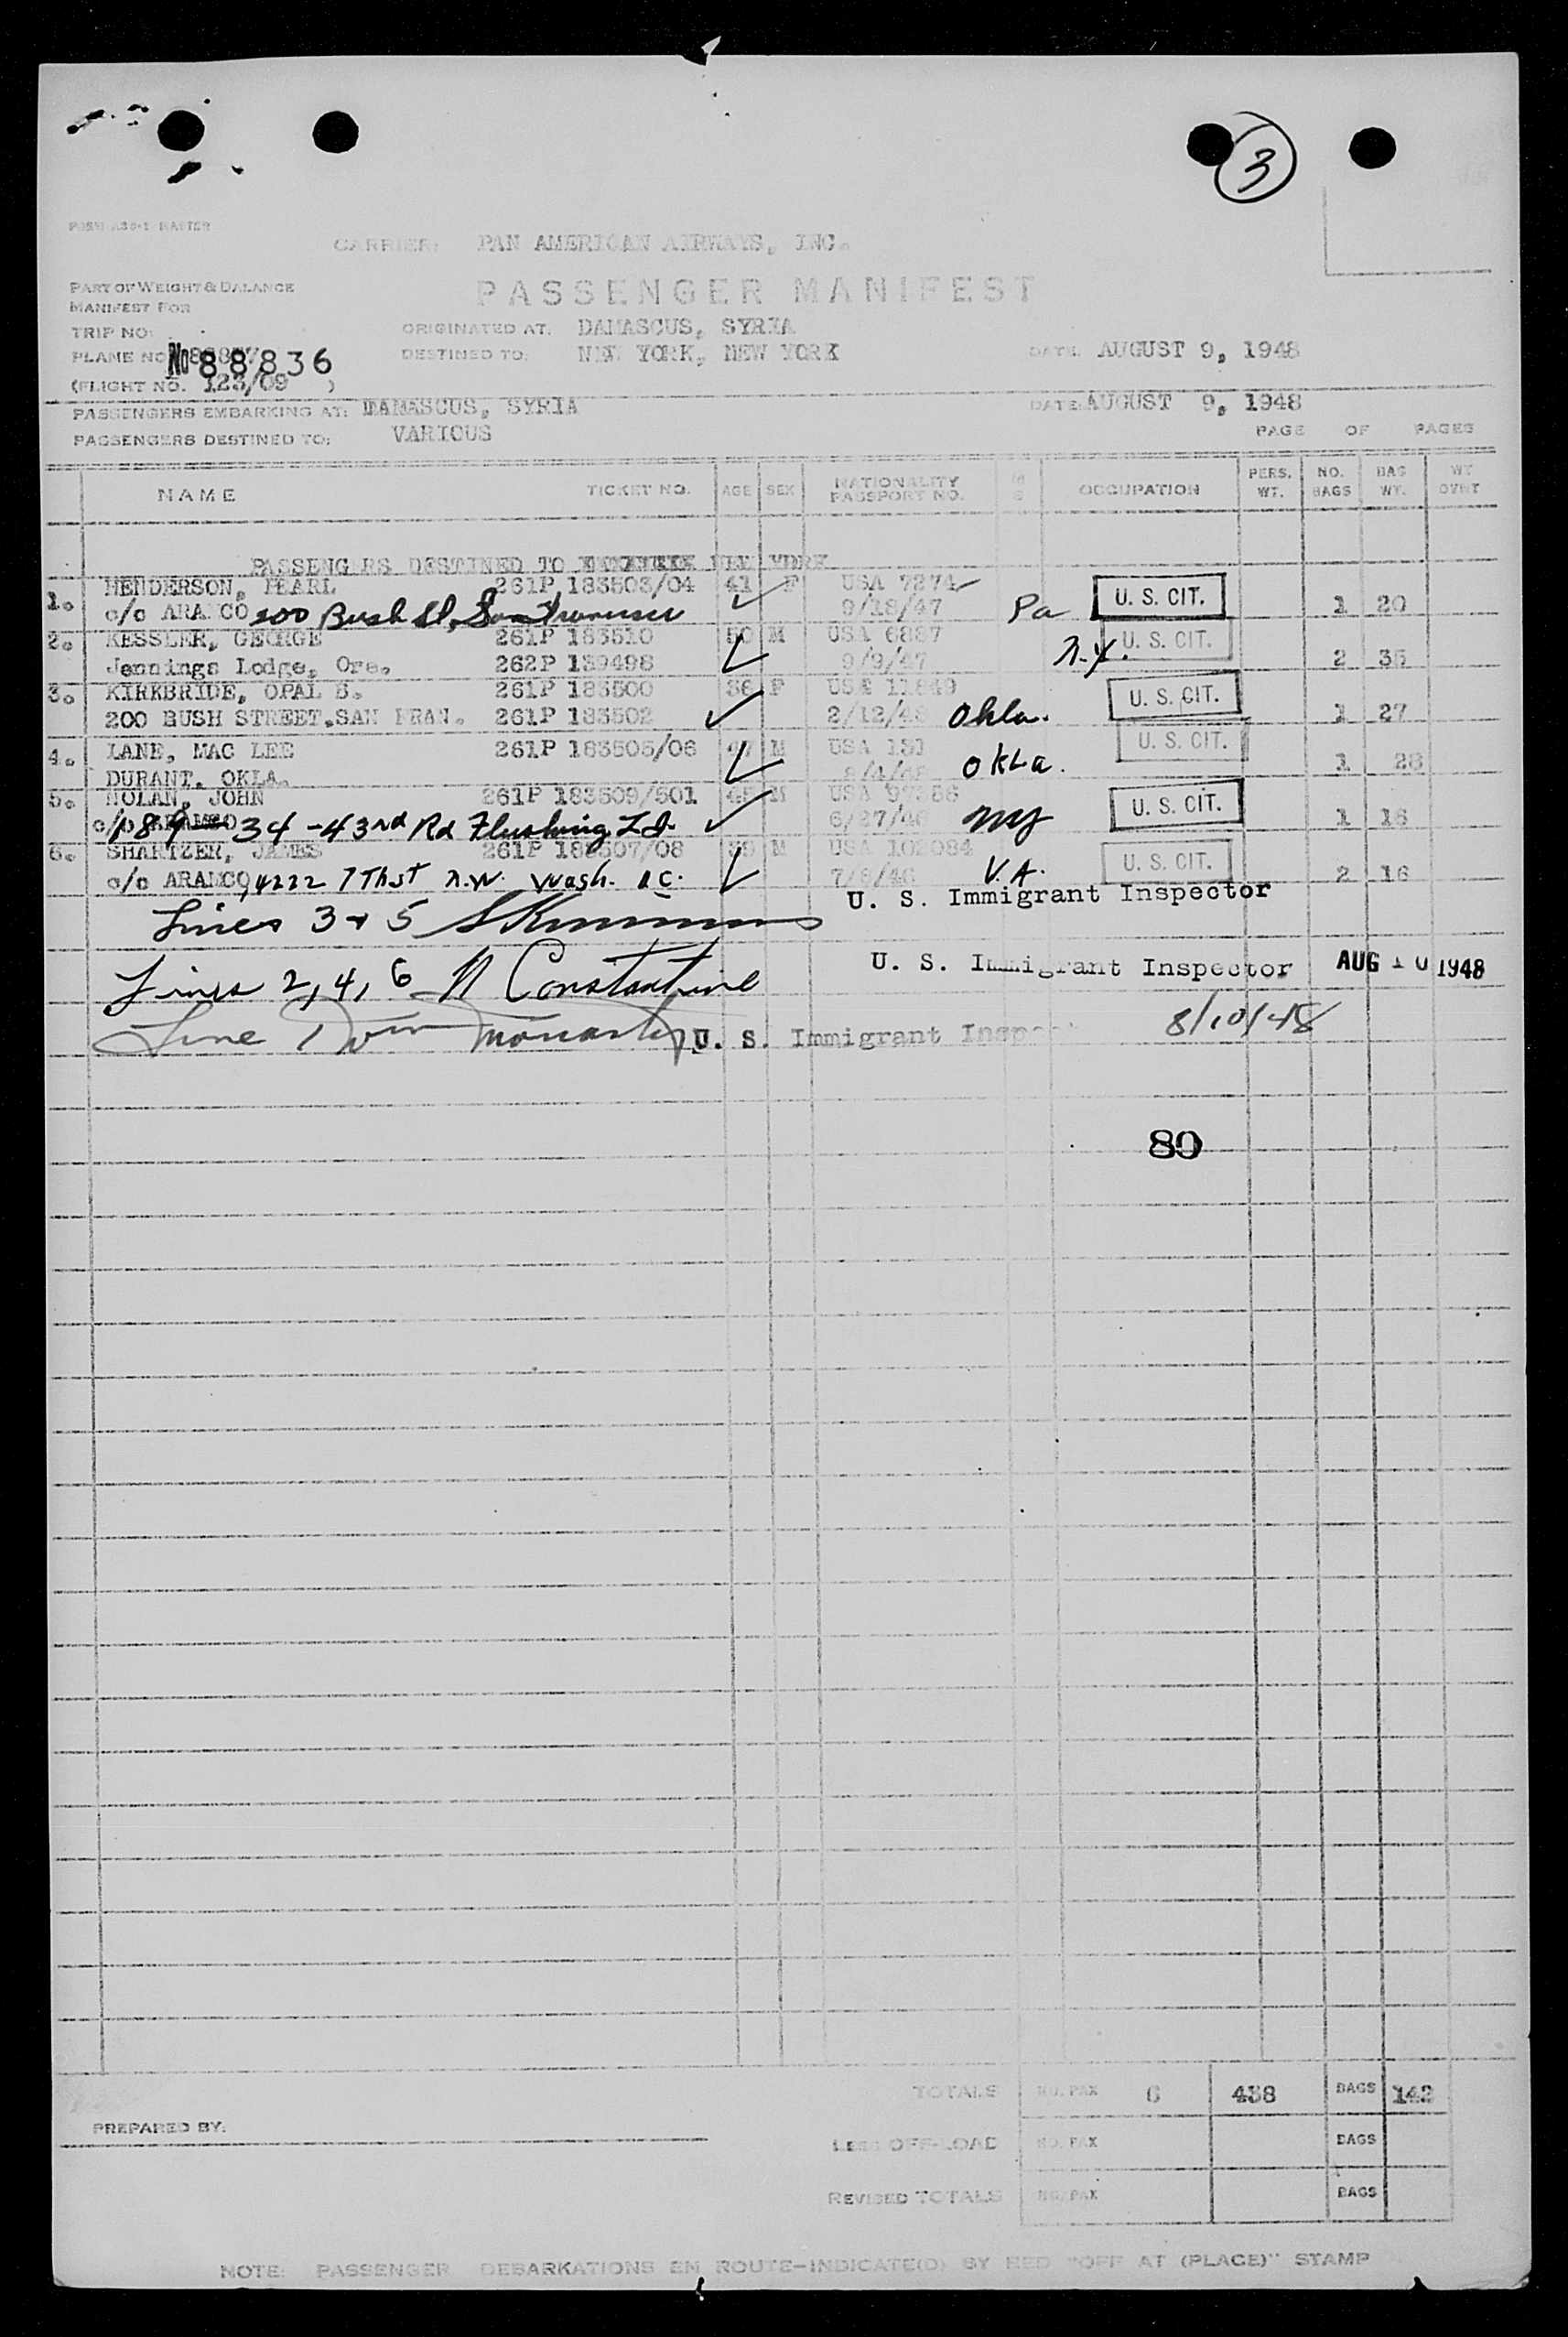 3
FORM
CARRIER: PAN AMERICAN AIRWAYS, INC.
PART OF WEIGHT & BALANCE
MANIFEST FOR
PASSENGER MANIFEST
TRIP NO.
ORIGINATED AT: DAMASCUS, SYRIA
PLANE NO. No 88836
DESTINED TO: NEW YORK, NEW YORK DATE: AUGUST 9, 1948
(FLIGHT NO. 123/09 )
PASSENGERS EMBARKING AT: DAMASCUS, SYRIA DATE: AUGUST 9, 1948
PASSENGERS DESTINED TO: VARIOUS PAGE OF PAGES
NAME TICKET NO. AGE SEX NATIONALITY PASSPORT NO. OCCUPATION PERS. WT. NO. BAGS BAG WT. WT OVWT
PASSENG RS DESTINED TO NEW YORK
1. HENDERSON, PEARL 261P 183503/04 41 F USA 7274 U. S. CIT.
c/o ARA CO 200 Bush St, San Francisco 9/18/47 Pa 1 20
2. KESSLER, GEORGE 261P 183510 50 M USA 6887 U. S. CIT.
Jennings Lodge, Ore. 262P 139498 9/9/47 N.Y. 2 35
3. KIRKBRIDE, OPAL B. 261P 183500 36 F USA 11849 U. S. CIT.
200 BUSH STREET.SAN FRAN. 261P 183502 2/12/48 Okla. 1 27
4. LANE, MAC LEE 261P 183505/06 M USA 131 U. S. CIT.
DURANT, OKLA. OKLA. 1 28
5. NOLAN, JOHN 261P 183509/501 M USA U. S. CIT.
c/o ARAMCO 189-34-43rd Rd Flushing L.I. 6/27/46 NY 1 16
6. SHARTZER, JAMES 261P 183507/08 39 M USA 102084 U. S. CIT.
c/o ARAMCO, 4222 7Th st N.W. Wash. D.C. 7/8/46 VA. 2 16
U. S. Immigrant Inspector
Lines 3 & 5
Lines 2, 4, 6 N Constantine U. S. Immigrant Inspector AUG 10 1948
Line 1 U. S. Immigrant Inspe 8/10/48
80
TOTALS NO. PAX 6 438 BAGS 142
PREPARED BY:
LESS OFF-LOAD NO. PAX BAGS
REVISED TOTALS NO. PAX BAGS
NOTE: PASSENGER DEBARKATIONS EN ROUTE-INDICATE(D) BY RED "OFF AT (PLACE)" STAMP